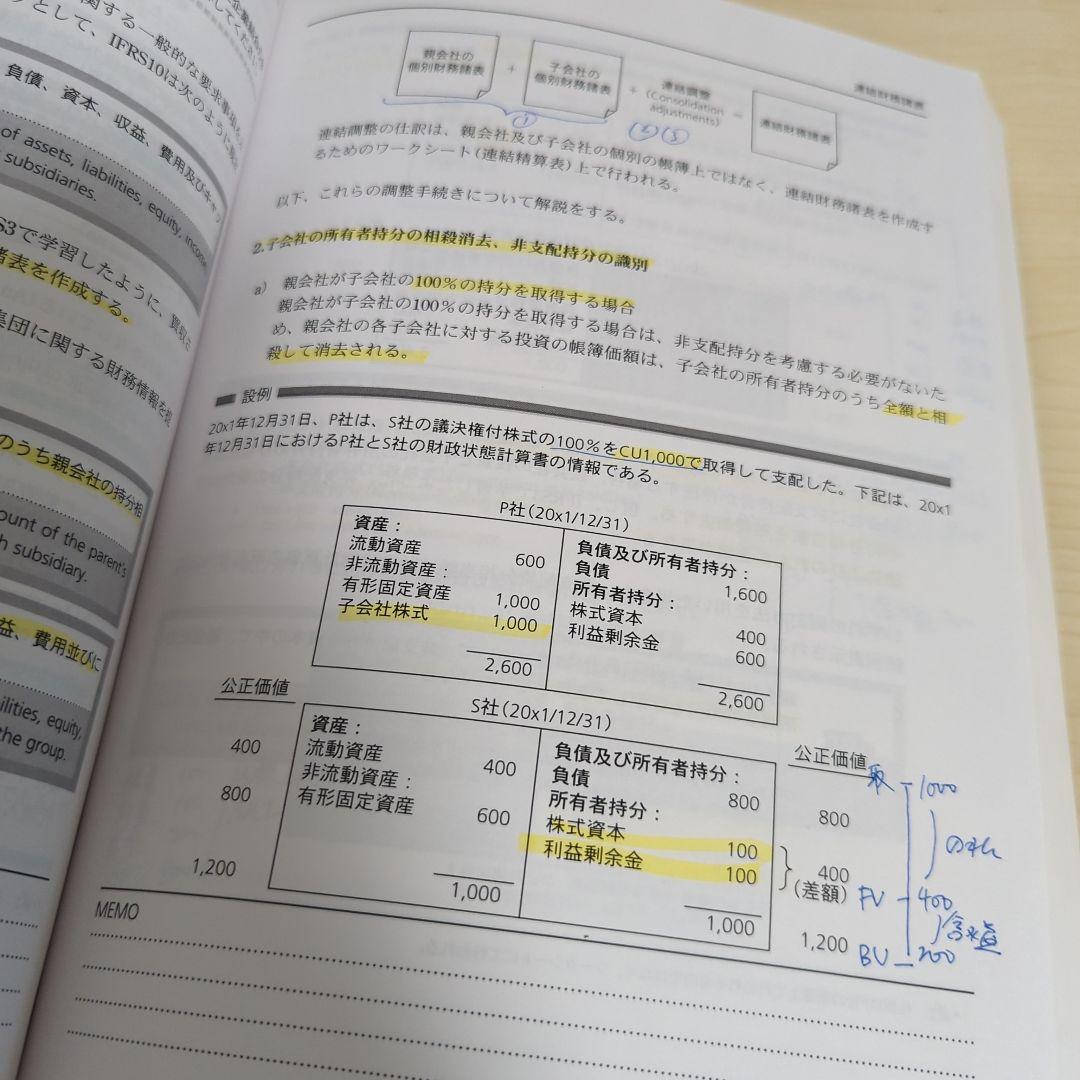 企業結合
関する一般的な要求事項
として、IFRS10は次のように
負債、資本、収益、費用及びキャッ
of assets, liabilities, equity, income
subsidiaries.
S3で学習したように、買収
諸表を作成する。
集団に関する財務情報を
のうち親会社の持分相
ount of the parent's
h subsidiary.
益、費用並びに
ilities, equity,
the group.
連結財務諸表
親会社の
個別財務諸表
+
子会社の
個別財務諸表
+
連結調整
(Consolidation
adjustments)
=
連結財務諸表
① ② ③
連結調整の仕訳は、親会社及び子会社の個別の帳簿上ではなく、連結財務諸表を作成す
るためのワークシート(連結精算表)上で行われる。
以下、これらの調整手続きについて解説をする。
2.子会社の所有者持分の相殺消去、非支配持分の識別
a) 親会社が子会社の100%の持分を取得する場合
親会社が子会社の100%の持分を取得する場合は、非支配持分を考慮する必要がないた
め、親会社の各子会社に対する投資の帳簿価額は、子会社の所有者持分のうち全額と相
殺して消去される。
設例
20x1年12月31日、P社は、S社の議決権付株式の100%をCU1,000で取得して支配した。下記は、20x1
年12月31日におけるP社とS社の財政状態計算書の情報である。
P社(20x1/12/31)
資産:
流動資産 600
非流動資産:
有形固定資産 1,000
子会社株式 1,000
2,600
負債及び所有者持分:
負債 1,600
所有者持分:
株式資本 400
利益剰余金 600
2,600
公正価値
S社(20x1/12/31)
公正価値
400
800
1,200
資産:
流動資産 400
非流動資産:
有形固定資産 600
1,000
負債及び所有者持分:
負債 800
所有者持分:
株式資本 100
利益剰余金 100
1,000
800
400
(差額)
1,200
取 1000
のれん
FV 400
含み益
BV 200
MEMO